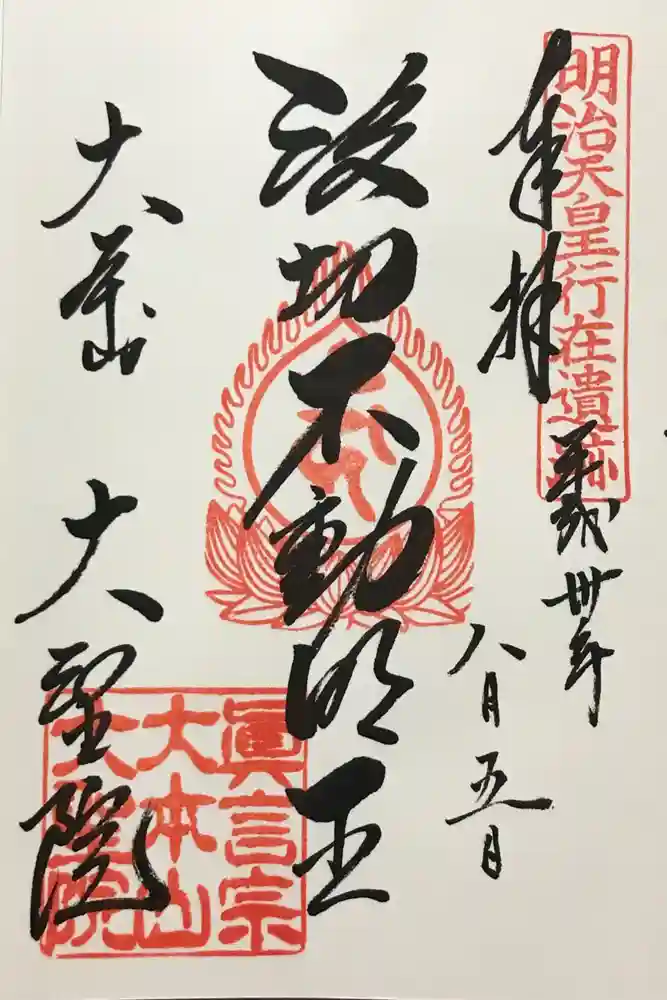 明治天皇行在遺跡
奉拝
平成卅年
八月五日
波切不動明王
大本山 大聖院
眞言宗
大本山
大聖院